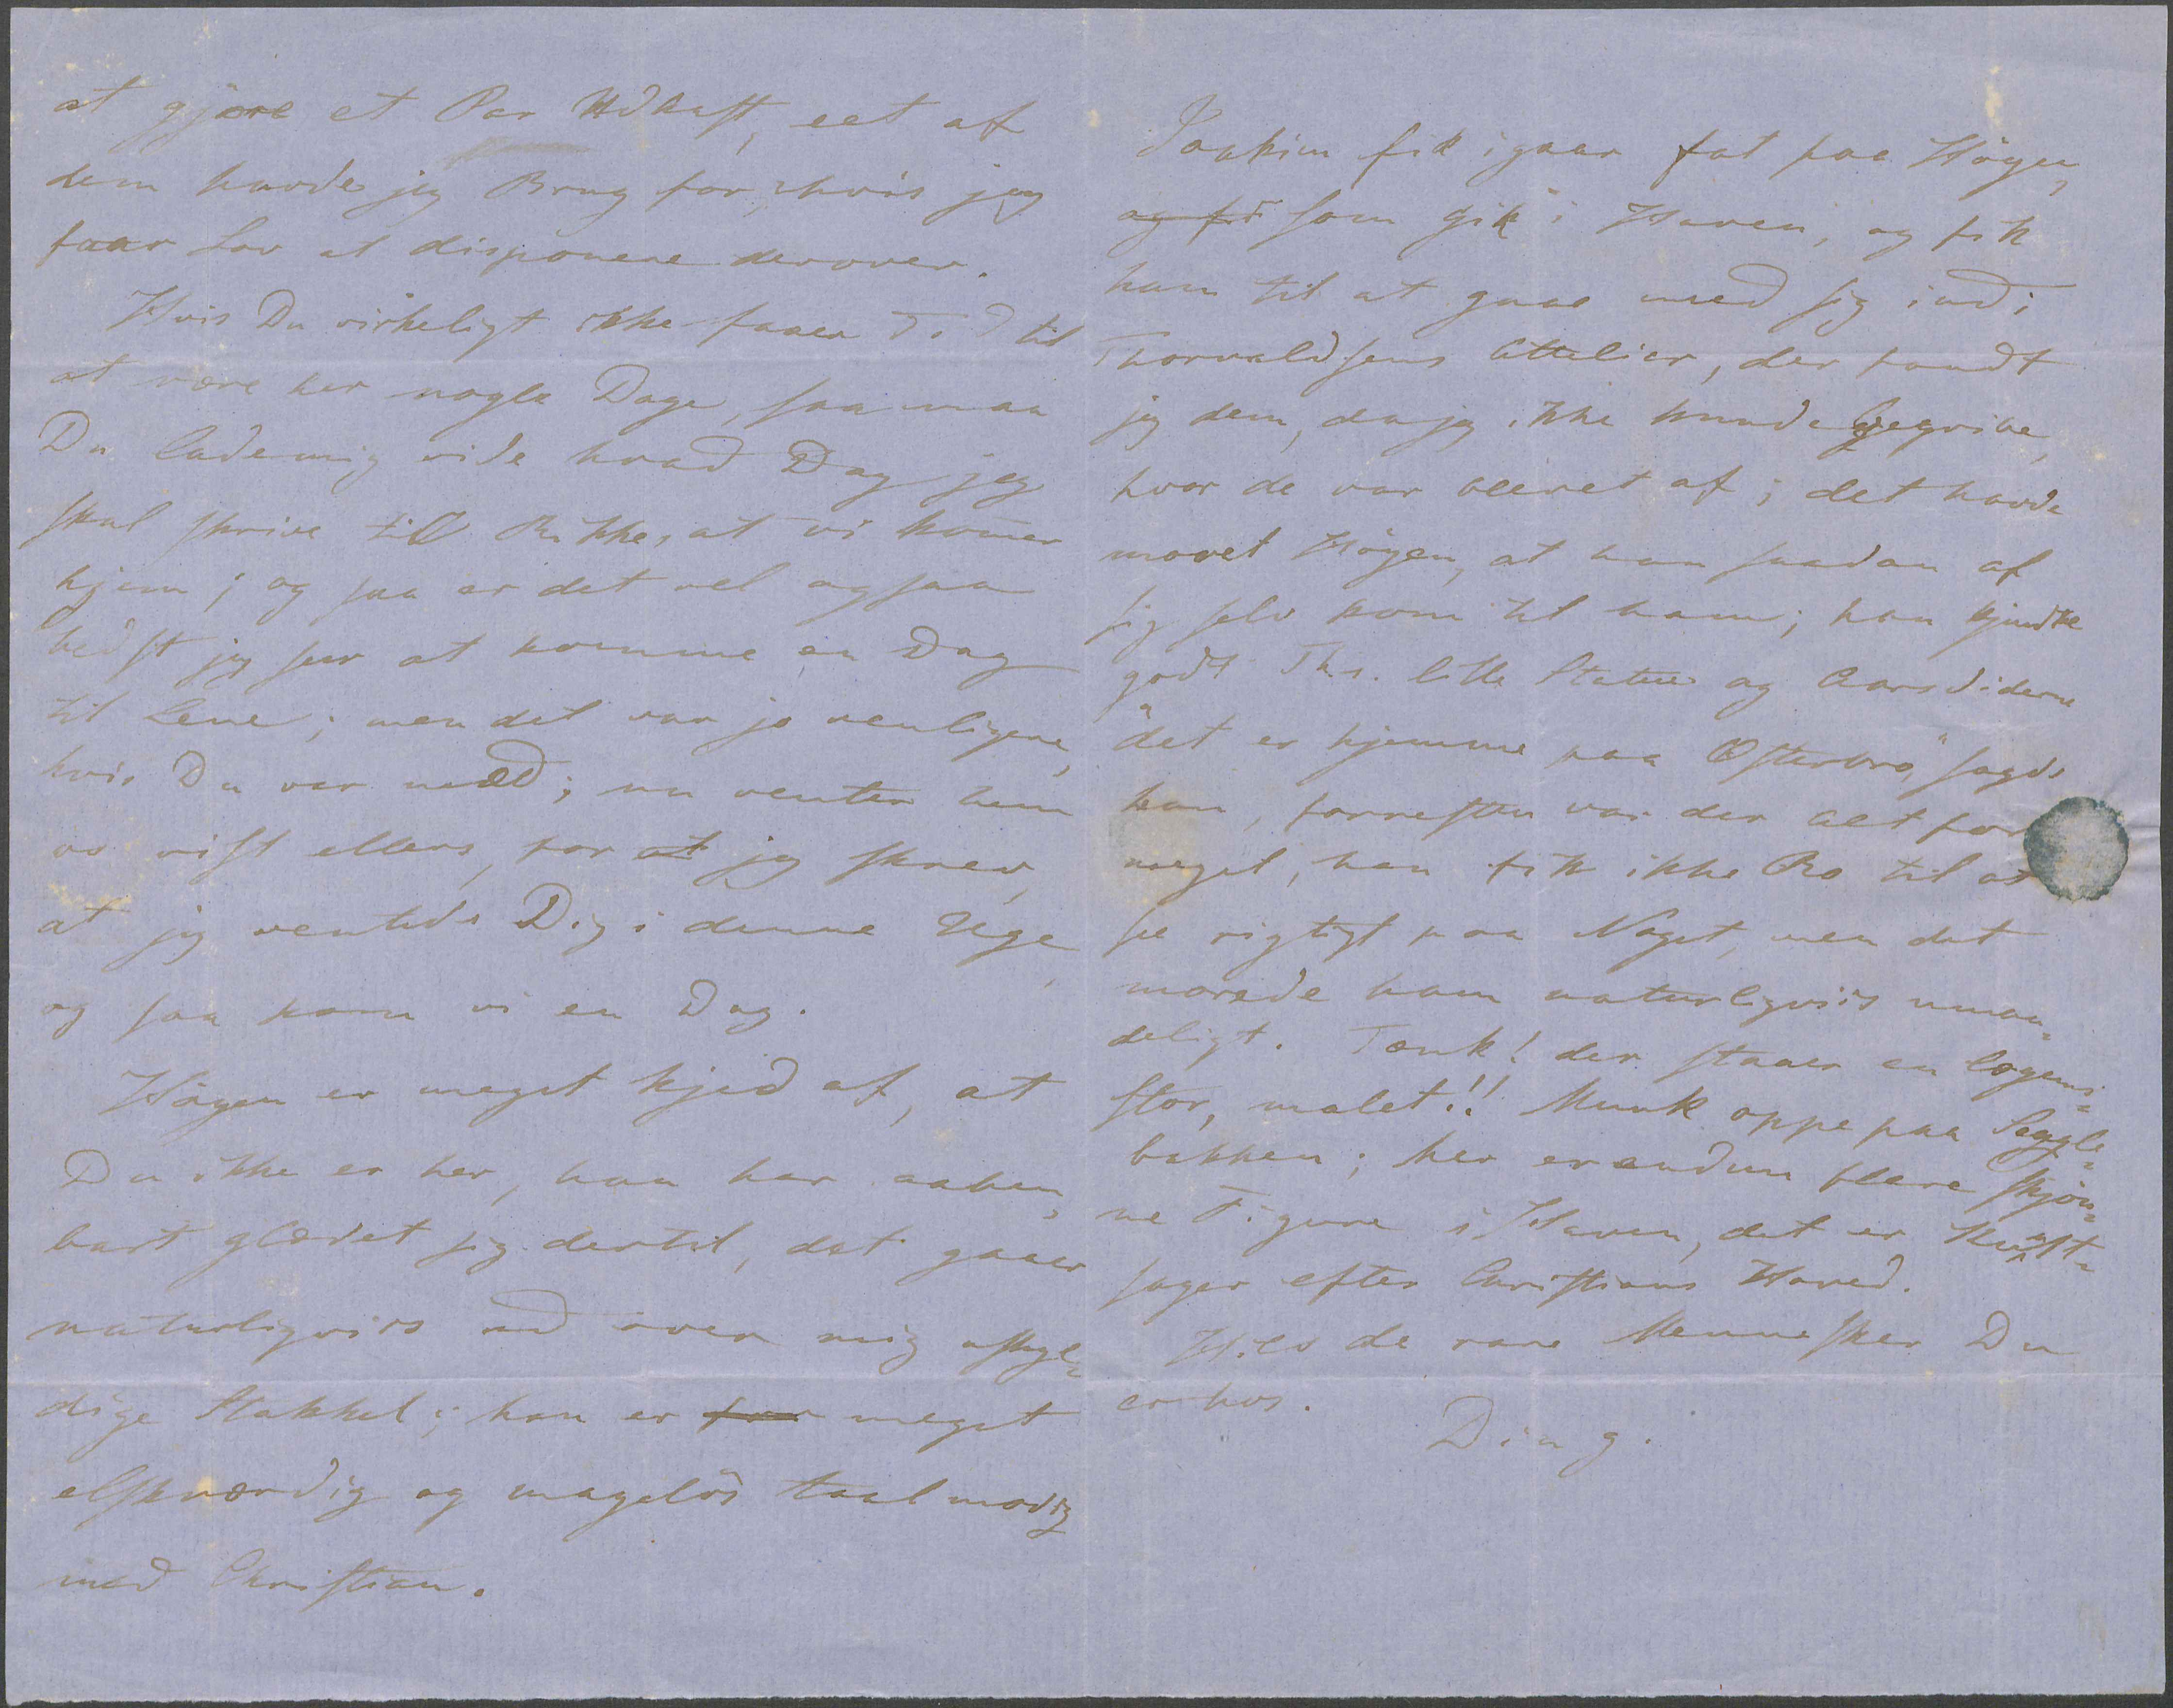 at gjøre et Par Udkast, eet af
dem havde jeg Brug for, hvis jeg
faar Lov at disponere derover.
Hvis Du virkeligt ikke faaer Tid til
at være her nogle Dage, saa maa
Du lade mig vide hvad Dag jeg
skal skrive til Rikke, at vi kommer
hjem; og saa er det vel ogsaa
bedst jeg seer at komme en Dag
til Lene; men det var jo venligere,
hvis Du var med; nu venter hun
os vist ellers, for at jeg skrev,
at jeg ventede Dig i denne Uge,
og saa kom vi en Dag.
Högen er meget kjed af, at
Du ikke er her, han har aaben-
bart glædet sig dertil, det gaaer
naturligviis ud over mig uskyl-
dige Stakkel; han er for meget
elskværdig og magelös taalmodig
med Christian.
Joakim fik igaar fat paa Högen,
og fi som gik i Haven, og fik
ham til at gaae med sig ind i
Thorvaldsens Attelier, der fandt
jeg dem, da jeg ikke kunde begribe,
hvor de var blevet af; det havde
moret Högen, at han saadan af
sig selv kom til ham; han kjendte
godt Ths. lille Statue og Aarstiderne
"det er hjemme paa Østerbro" sagde
han, forresten var der alt for
meget, han fik ikke Ro til at
see rigtigt paa Noget, men det
morede ham naturligviis umaa-
deligt. Tænk! der staaer en legems-
stor, malet!! Munk oppe paa
bakken; her er endnu flere skjön-
ne Figure i Haven, det er Kunst-
sager efter Christians Hoved.
Hils de rare Mennesker Du
er hos.
Din g.